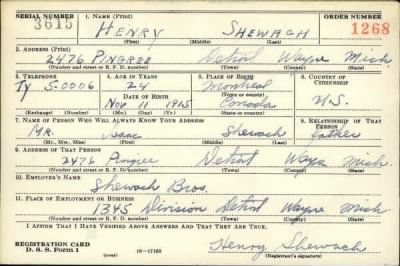 SERIAL NUMBER 1. NAME (Print) ORDER NUMBER
3615 HENRY SHEWACH 1268
(First) (Middle) (Last)
2. ADDRESS (Print)
2476 PINGREE Detroit Wayne Mich.
(Number and street or R. F. D. number) (Town) (County) (State)
3. TELEPHONE 4. AGE IN YEARS 5. PLACE OF BIRTH 6. COUNTRY OF CITIZENSHIP
Ty 5.0006 24 Montreal
DATE OF BIRTH (Town or county)
Nov 11 1915 Canada U.S.
(Exchange) (Number) (Mo.) (Day) (Yr.) (State or country)
7. NAME OF PERSON WHO WILL ALWAYS KNOW YOUR ADDRESS 8. RELATIONSHIP OF THAT PERSON
Mr. Isaac Shewach father
(Mr., Mrs., Miss) (First) (Middle) (Last)
9. ADDRESS OF THAT PERSON
2476 Pingree Detroit Wayne Mich.
(Number and street or R. F. D. number) (Town) (County) (State)
10. EMPLOYER'S NAME
Shewach Bros.
11. PLACE OF EMPLOYMENT OR BUSINESS
1345 Division Detroit Wayne Mich.
(Number and street or R. F. D. number) (Town) (County) (State)
I AFFIRM THAT I HAVE VERIFIED ABOVE ANSWERS AND THAT THEY ARE TRUE.
REGISTRATION CARD
D. S. S. Form 1 (over) 16—17105 Henry Shewach
(Registrant's signature)